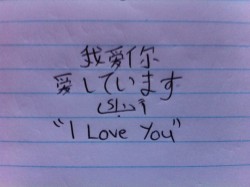 我爱你
愛しています
"I Love You"